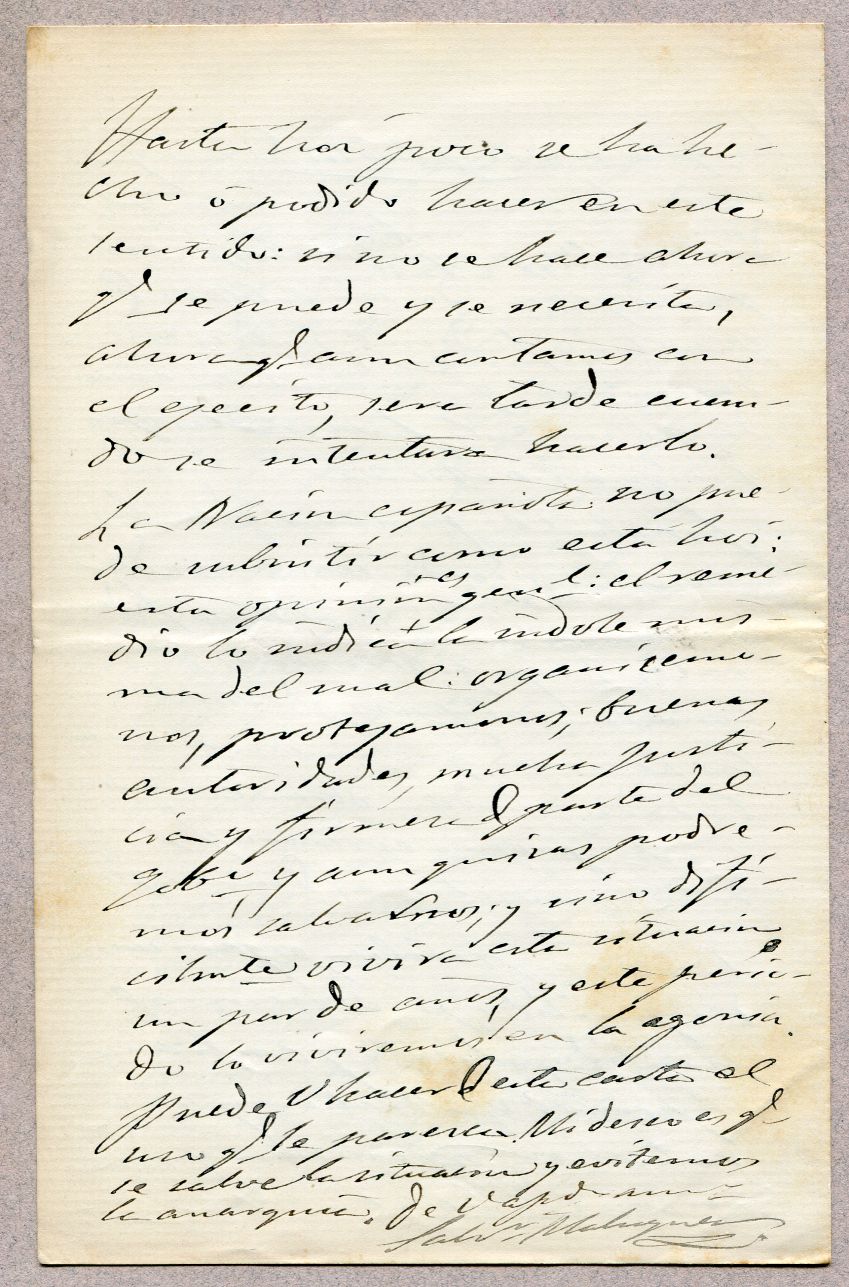 Hasta hoi poco se ha he-
cho ó podido hacer en este
sentido: si no se hace ahora
q.e se puede y se necesita,
ahora q.e aun contamos con
el ejecito, sera tarde cuan-
do se intentara hacerlo.
La Nacion española no pue-
de subsistir como está hoi:
esta opinión es genl.: el reme-
dio lo indica la indole mis-
ma del mal: organicemo-
nos, protejamonos; buenas
autoridades, mucha justi-
cia y firmesa de parte del
gobno, y aun quisas podre-
mos salvarnos; y sino difi-
cilmte vivira esta situacion
un par de años, y este perio-
do lo viviremos en la agonia.
Puede V hacer de esta carta el
uso q.e le paresca. Mi deseo es q.e
se salve la situación y evitemos
la anarquia. De V
Salvr